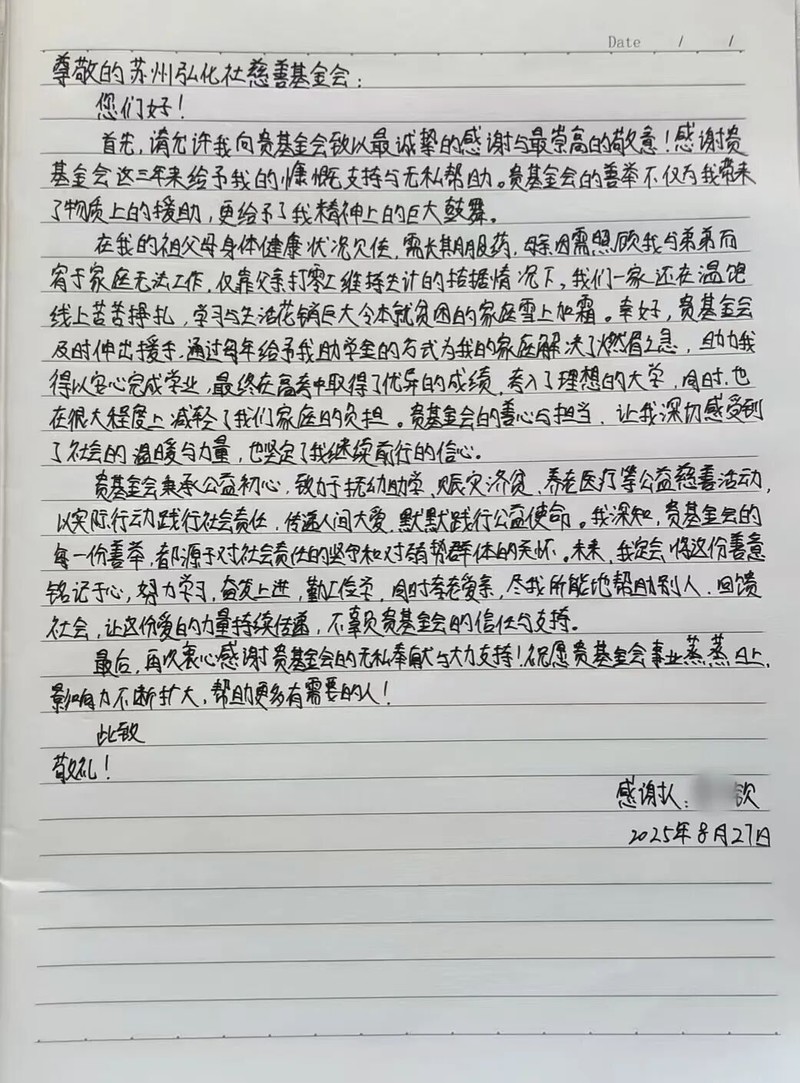 Date / /
尊敬的苏州弘化社慈善基金会：
您们好！
首先，请允许我向贵基金会致以最诚挚的感谢与最崇高的敬意！感谢贵
基金会这三年来给予我的慷慨支持与无私帮助。贵基金会的善举不仅为我带来
了物质上的援助，更给予了我精神上的巨大鼓舞。
在我的祖父母身体健康状况欠佳，需长期服药，母亲因需照顾我与弟弟而
宥于家庭无法工作，仅靠父亲打零工维持生计的拮据情况下，我们一家还在温饱
线上苦苦挣扎，学习与生活花销巨大令本就贫困的家庭雪上加霜。幸好，贵基金会
及时伸出援手，通过每年给予我助学金的方式为我的家庭解决了燃眉之急，助力我
得以安心完成学业，最终在高考中取得了优异的成绩，考入了理想的大学，同时，也
在很大程度上减轻了我们家庭的负担。贵基金会的善心与担当，让我深切感受到
了社会的温暖与力量，也坚定了我继续前行的信心。
贵基金会秉承公益初心，致力于扶幼助学、赈灾济贫、养老医疗等公益慈善活动，
以实际行动践行社会责任，传递人间大爱，默默践行公益使命。我深知，贵基金会的
每一份善举，都源于对社会责任的坚守和对弱势群体的关怀。未来，我定会将这份善意
铭记于心，努力学习，奋发上进，勤工俭学，同时孝老爱亲，尽我所能地帮助别人，回馈
社会，让这份爱的力量持续传递，不辜负贵基金会的信任与支持。
最后，再次衷心感谢贵基金会的无私奉献与大力支持！祝愿贵基金会事业蒸蒸日上，
影响力不断扩大，帮助更多有需要的人！
此致
敬礼！
感谢人：钦
2025年8月27日